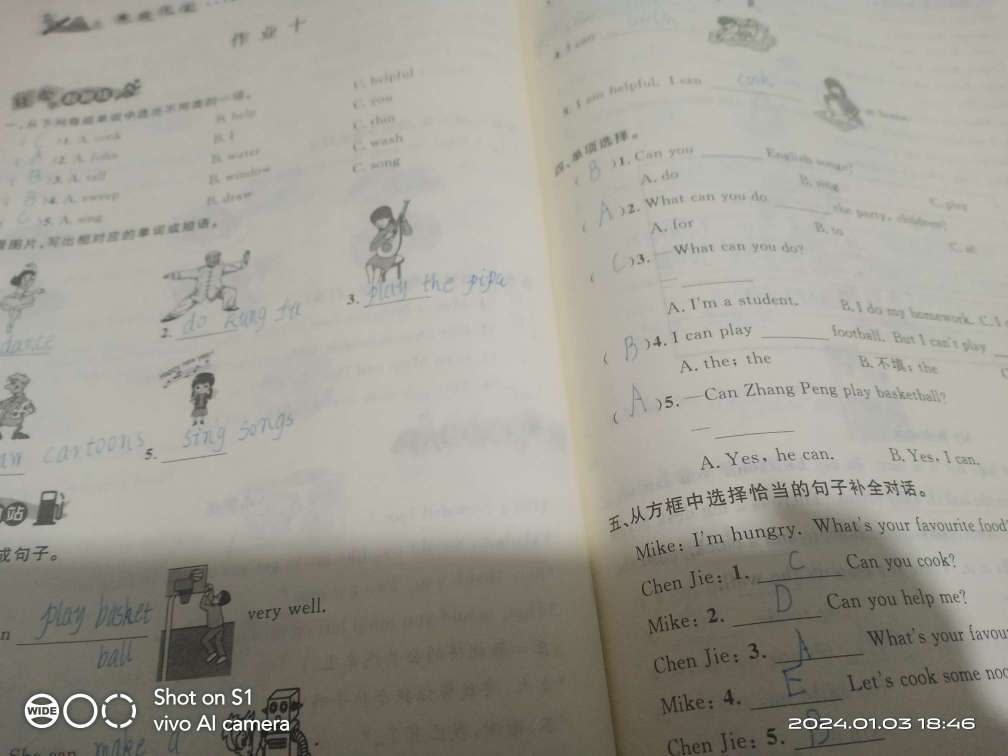 作业十
一、从下列每组单词中选出不同类的一项。
( C )1. A. cook B. help C. helpful
( A )2. A. John B. I C. you
( B )3. A. tall B. water C. thin
( B )4. A. sweep B. window C. wash
( C )5. A. sing B. draw C. song
看图片,写出相对应的单词或短语。
dance
2. do kung fu
3. play the pipa
cartoons
5. sing songs
站
成句子。
play basketball very well.
She can make a
.
5. I am helpful. I can cook at home.
四、单项选择。
( B )1. Can you English songs?
A. do B. sing C. play
( A )2. What can you do the party, children?
A. for B. to C. at
( C )3. —What can you do?
—
A. I'm a student. B. I do my homework. C. I
( B )4. I can play football. But I can't play
A. the; the B. 不填; the
( A )5. —Can Zhang Peng play basketball?
—
A. Yes, he can. B. Yes, I can.
五、从方框中选择恰当的句子补全对话。
Mike: I'm hungry. What's your favourite food
Chen Jie: 1. C Can you cook?
Mike: 2. D Can you help me?
Chen Jie: 3. A What's your favou
Mike: 4. E Let's cook some noo
Chen Jie: 5. B
WIDE
Shot on S1
vivo AI camera
2024.01.03 18:46